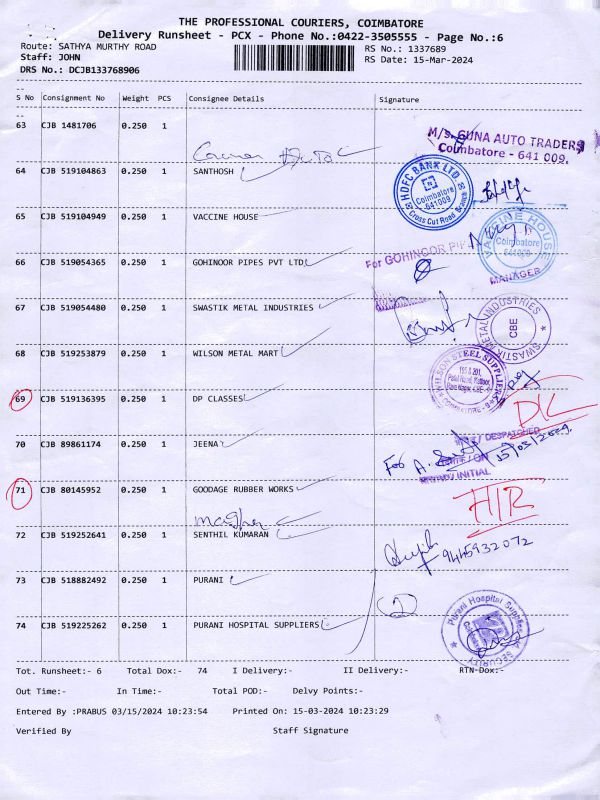 THE PROFESSIONAL COURIERS, COIMBATORE
Delivery Runsheet - PCX - Phone No.:0422-3505555 - Page No.:6
Route: SATHYA MURTHY ROAD RS No.: 1337689
Staff: JOHN RS Date: 15-Mar-2024
DRS No.: DCJB133768906
S No Consignment No Weight PCS Consignee Details Signature
63 CJB 1481706 0.250 1 M/s. GUNA AUTO TRADERS
Coimbatore - 641 009.
64 CJB 519104863 0.250 1 SANTHOSH HDFC BANK LTD. Coimbatore 641009 Cross Cut Road Branch
65 CJB 519104949 0.250 1 VACCINE HOUSE VACCINE HOUSE Coimbatore 641009
66 CJB 519054365 0.250 1 GOHINOOR PIPES PVT LTD For GOHINOOR PIP MANAGER
67 CJB 519054480 0.250 1 SWASTIK METAL INDUSTRIES SWASTIK METAL INDUSTRIES CBE
68 CJB 519253879 0.250 1 WILSON METAL MART WILSON STEEL SUPPLIERS COIMBATORE - 9
69 CJB 519136395 0.250 1 DP CLASSES D/C
70 CJB 89861174 0.250 1 JEENA DESPATCHED
For A. 15/03/2024
INITIAL
71 CJB 80145952 0.250 1 GOODAGE RUBBER WORKS
72 CJB 519252641 0.250 1 SENTHIL KUMARAN 9445932072
73 CJB 518882492 0.250 1 PURANI
74 CJB 519225262 0.250 1 PURANI HOSPITAL SUPPLIERS Purani Hospital Supplies SECURITY
Tot. Runsheet:- 6 Total Dox:- 74 I Delivery:- II Delivery:- RTN-Dox:-
Out Time:- In Time:- Total POD:- Delvy Points:-
Entered By :PRABUS 03/15/2024 10:23:54 Printed On: 15-03-2024 10:23:29
Verified By Staff Signature